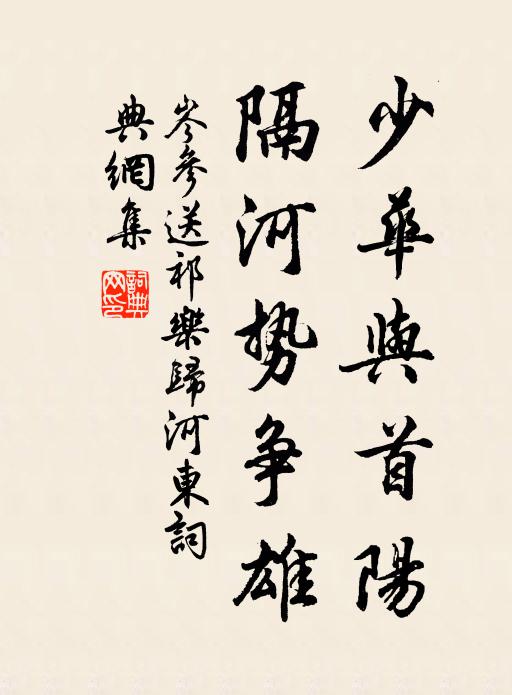 少華與首陽
隔河势争雄
岑參送祁樂歸河東詞
典網集
詞典
网印